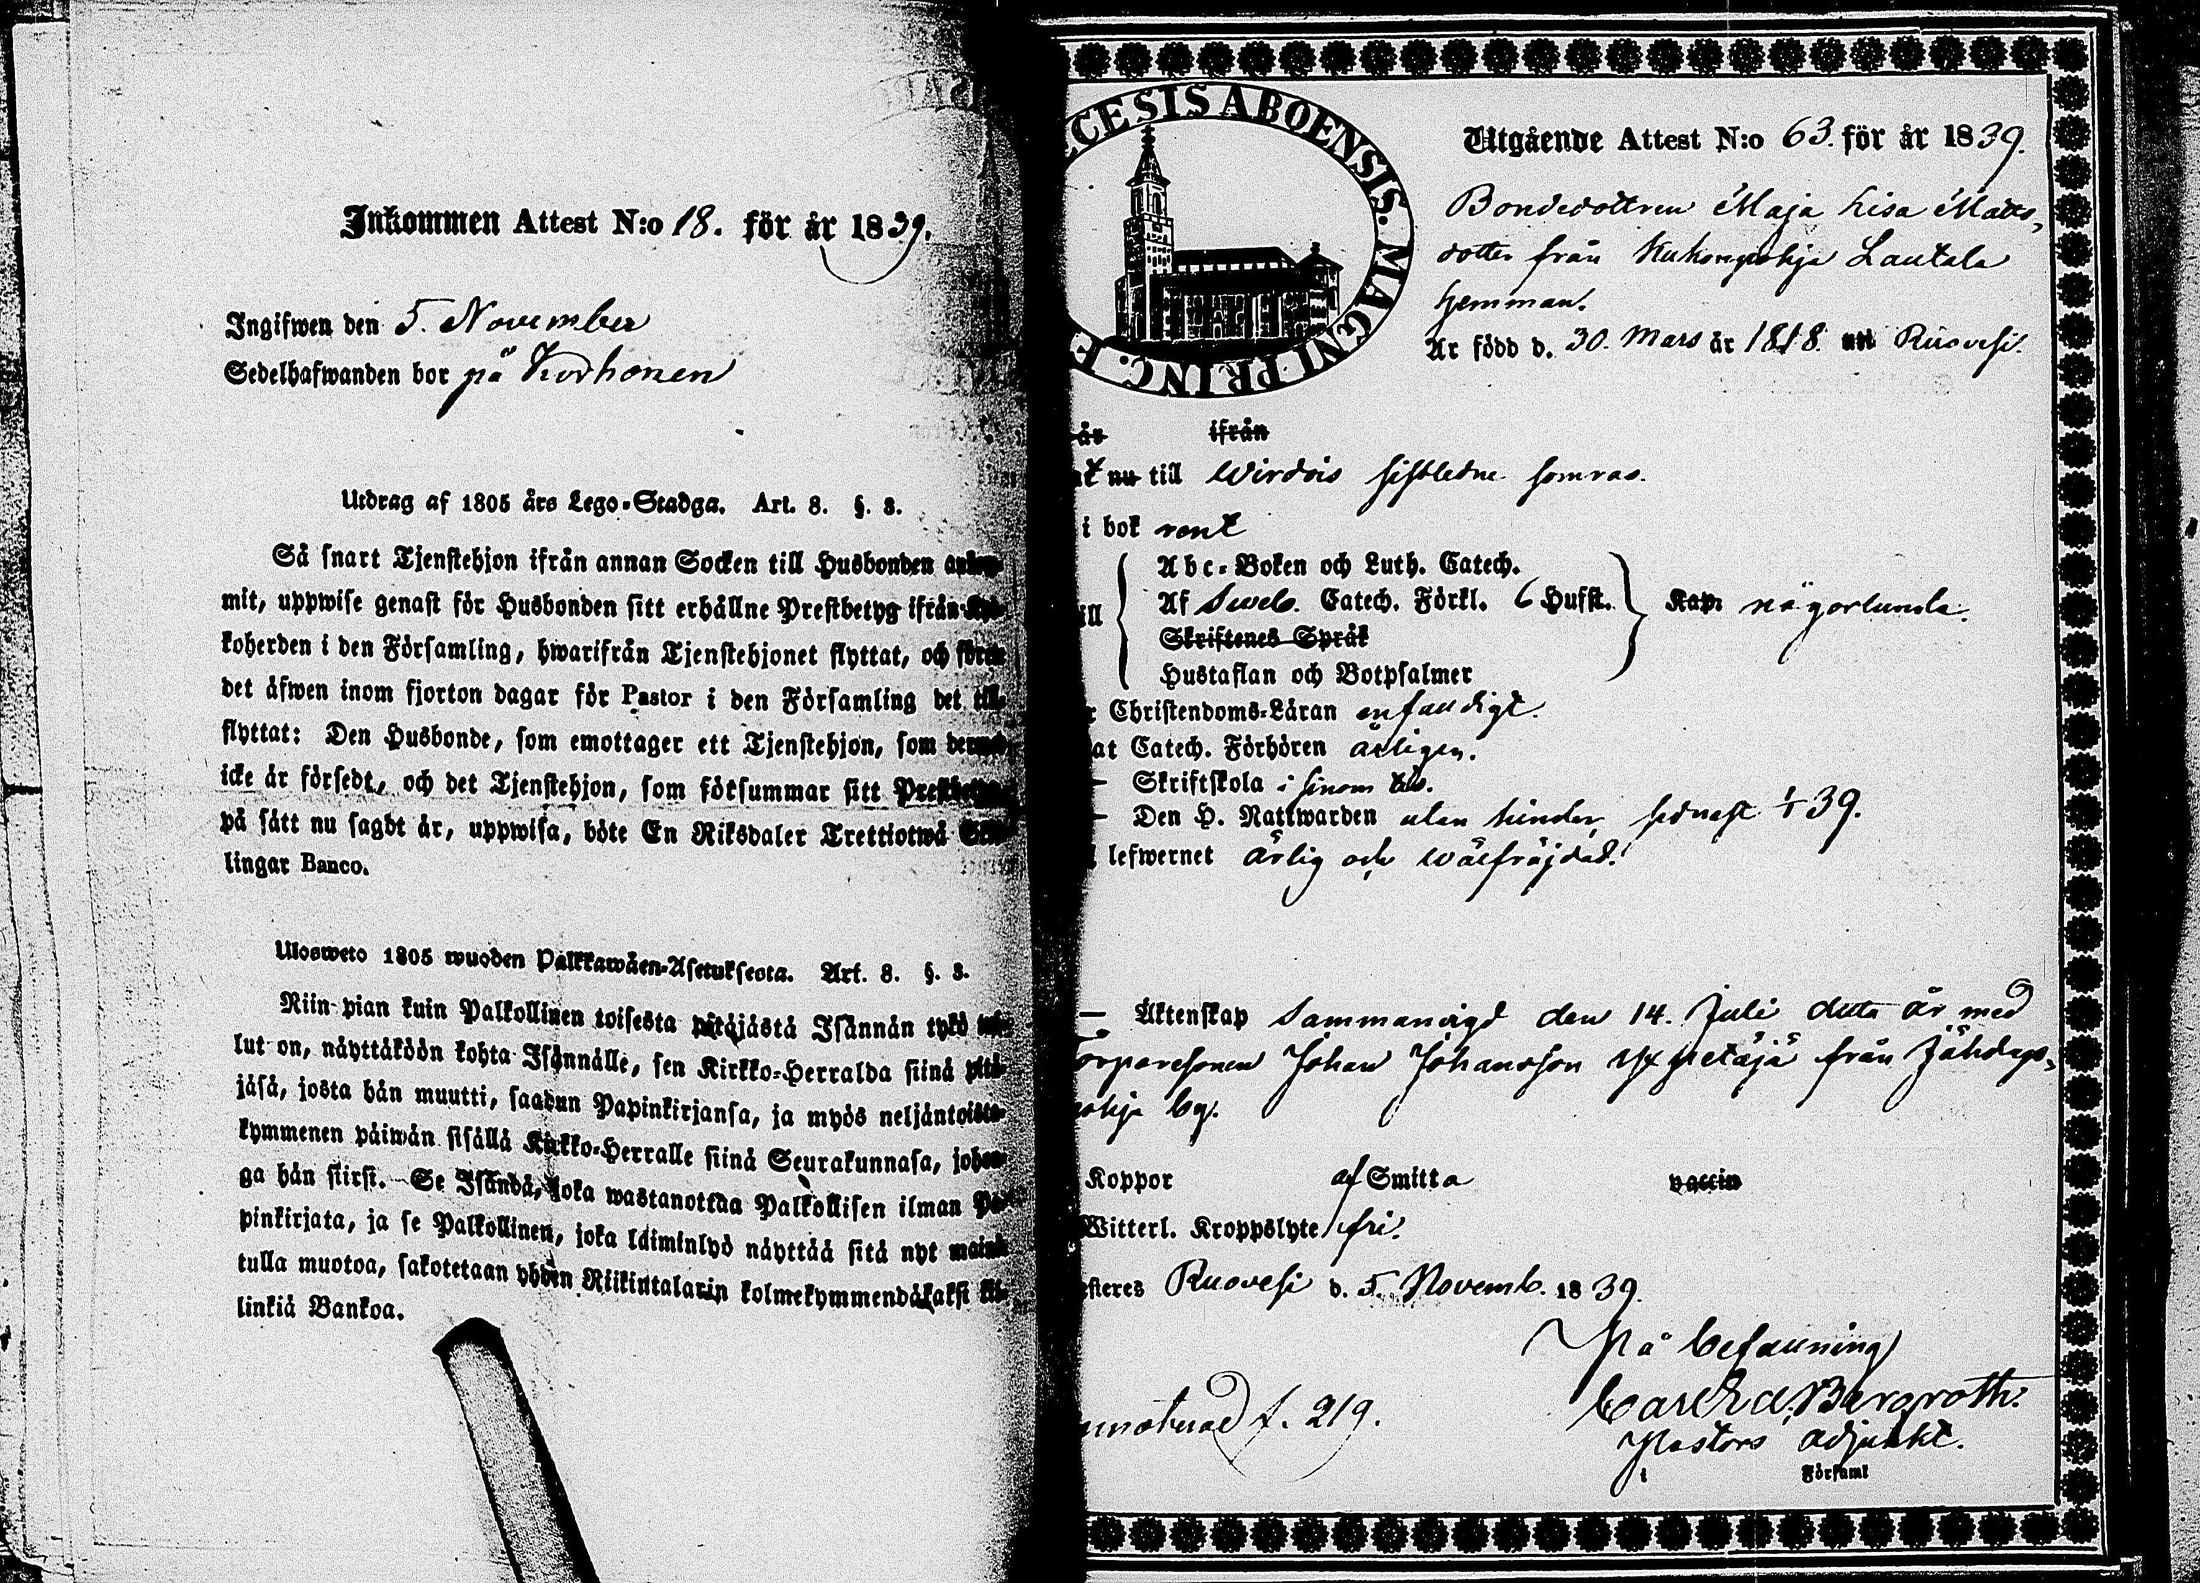 Inkommen Attest N:o 18. för år 1839.
Ingifwen den 5. November
Sedelhafwanden bor på Korhonen
Utdrag af 1805 års Lego-Stadga. Art. 8. §. 3.
Så snart Tjenstehjon ifrån annan Socken till Husbonden
mit, uppwise genast för Husbonden sitt erhållne Prestbetyg ifrån
koherden i den Församling, hwarifrån Tjenstehjonet flyttat, och
det äfwen inom fjorton dagar för Pastor i den Församling det till-
flyttat: Den Husbonde, som emottager ett Tjenstehjon, som
icke är försedt, och det Tjenstehjon, som försummar sitt
på sätt nu sagdt är, uppwisa, böte En Riksdaler Trettiotwå
lingar Banco.
Ulosweto 1805 wuoden Palkkawäen-Asetuksesta. Art. 8. §. 3.
Niin pian kuin Palkollinen toisesta pitäjästä Isännän tykö
lut on, näyttäköön kohta Isännälle, sen Kirkko-Herralda siinä pitä-
jäsä, josta hän muutti, saadun Papinkirjansa, ja myös neljäntoista-
kymmenen päiwän sisällä Kirkko-Herralle siinä Seurakunnasa, johon-
ga hän siirsi. Se Isändä, joka wastanottaa Palkollisen ilman Pa-
pinkirjata, ja se Palkollinen, joka laiminlyö näyttää sitä nyt
tulla muotoa, sakotetaan yhden Riikintalarin kolmekymmendäkaksi
linkiä Bankoa.
CESIS ABOENSIS. MAGNI PRINC. F
Utgående Attest N:o 63. för år 1839.
Bondedottren Maja Lisa Matts-
dotter från Kukonpohja Lautala
hemman.
Är född d. 30. Mars år 1818. Ruovesi.
år ifrån
nu till Wirdois sistledne somras.
i bok rent
Abc-Boken och Luth. Catech.
Af Sveb. Catech. Förkl. 6 Hufst. Kap. någorlunda.
Skriftenes Språk
Hustaflan och Botpsalmer
Christendoms-Läran enfaldigt.
at Catech. Förhören årligen.
— Skriftskola i sinom tid.
— Den H. Nattwarden utan hinder, sednast 39.
lefwernet ärlig och wälfräjdad.
— Äktenskap sammanvigd den 14. Juli detta år med
Torparesonen Johan Johansson från
by.
Koppor af Smitta vaccin
Witterl. Kroppslyte fri.
Ruovesi d. 5. Novemb. 1839.
På befallning
Carl Ed. Bergroth.
Pastors adjunkt.
f. 219.
i Församl